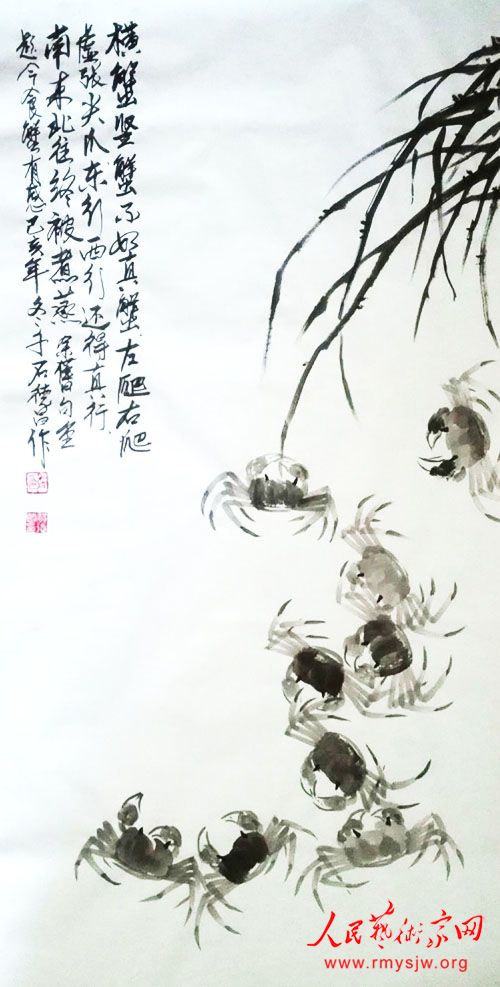 横蟹竖蟹不如真蟹左爬右爬
虚张尖爪东行西行还得真行
南来北往终被煮蒸余旧句重
题今食蟹有感己亥年冬于石楚昌作
人民艺术家网
www.rmysjw.org